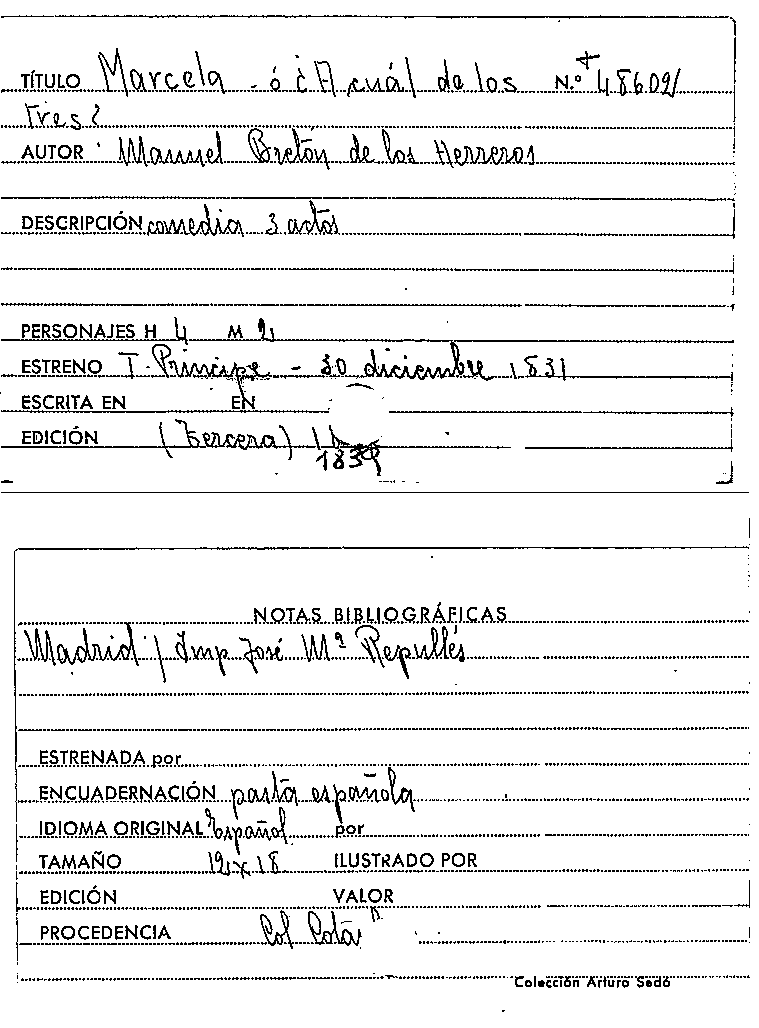 TÍTULO Marcela - ó ¿A cuál de los N.º 48609/
tres?
AUTOR Manuel Bretón de los Herreros
DESCRIPCIÓN comedia 3 actos
PERSONAJES H 4 M 2
ESTRENO T. Principe - 30 diciembre 1831
ESCRITA EN EN
EDICIÓN (Tercera)
NOTAS BIBLIOGRÁFICAS
Madrid / Imp José Mª Repullés
ESTRENADA por
ENCUADERNACIÓN pasta española
IDIOMA ORIGINAL Español por
TAMAÑO 12 x 18 ILUSTRADO POR
EDICIÓN VALOR
PROCEDENCIA Col Cota
Colección Arturo Sedó